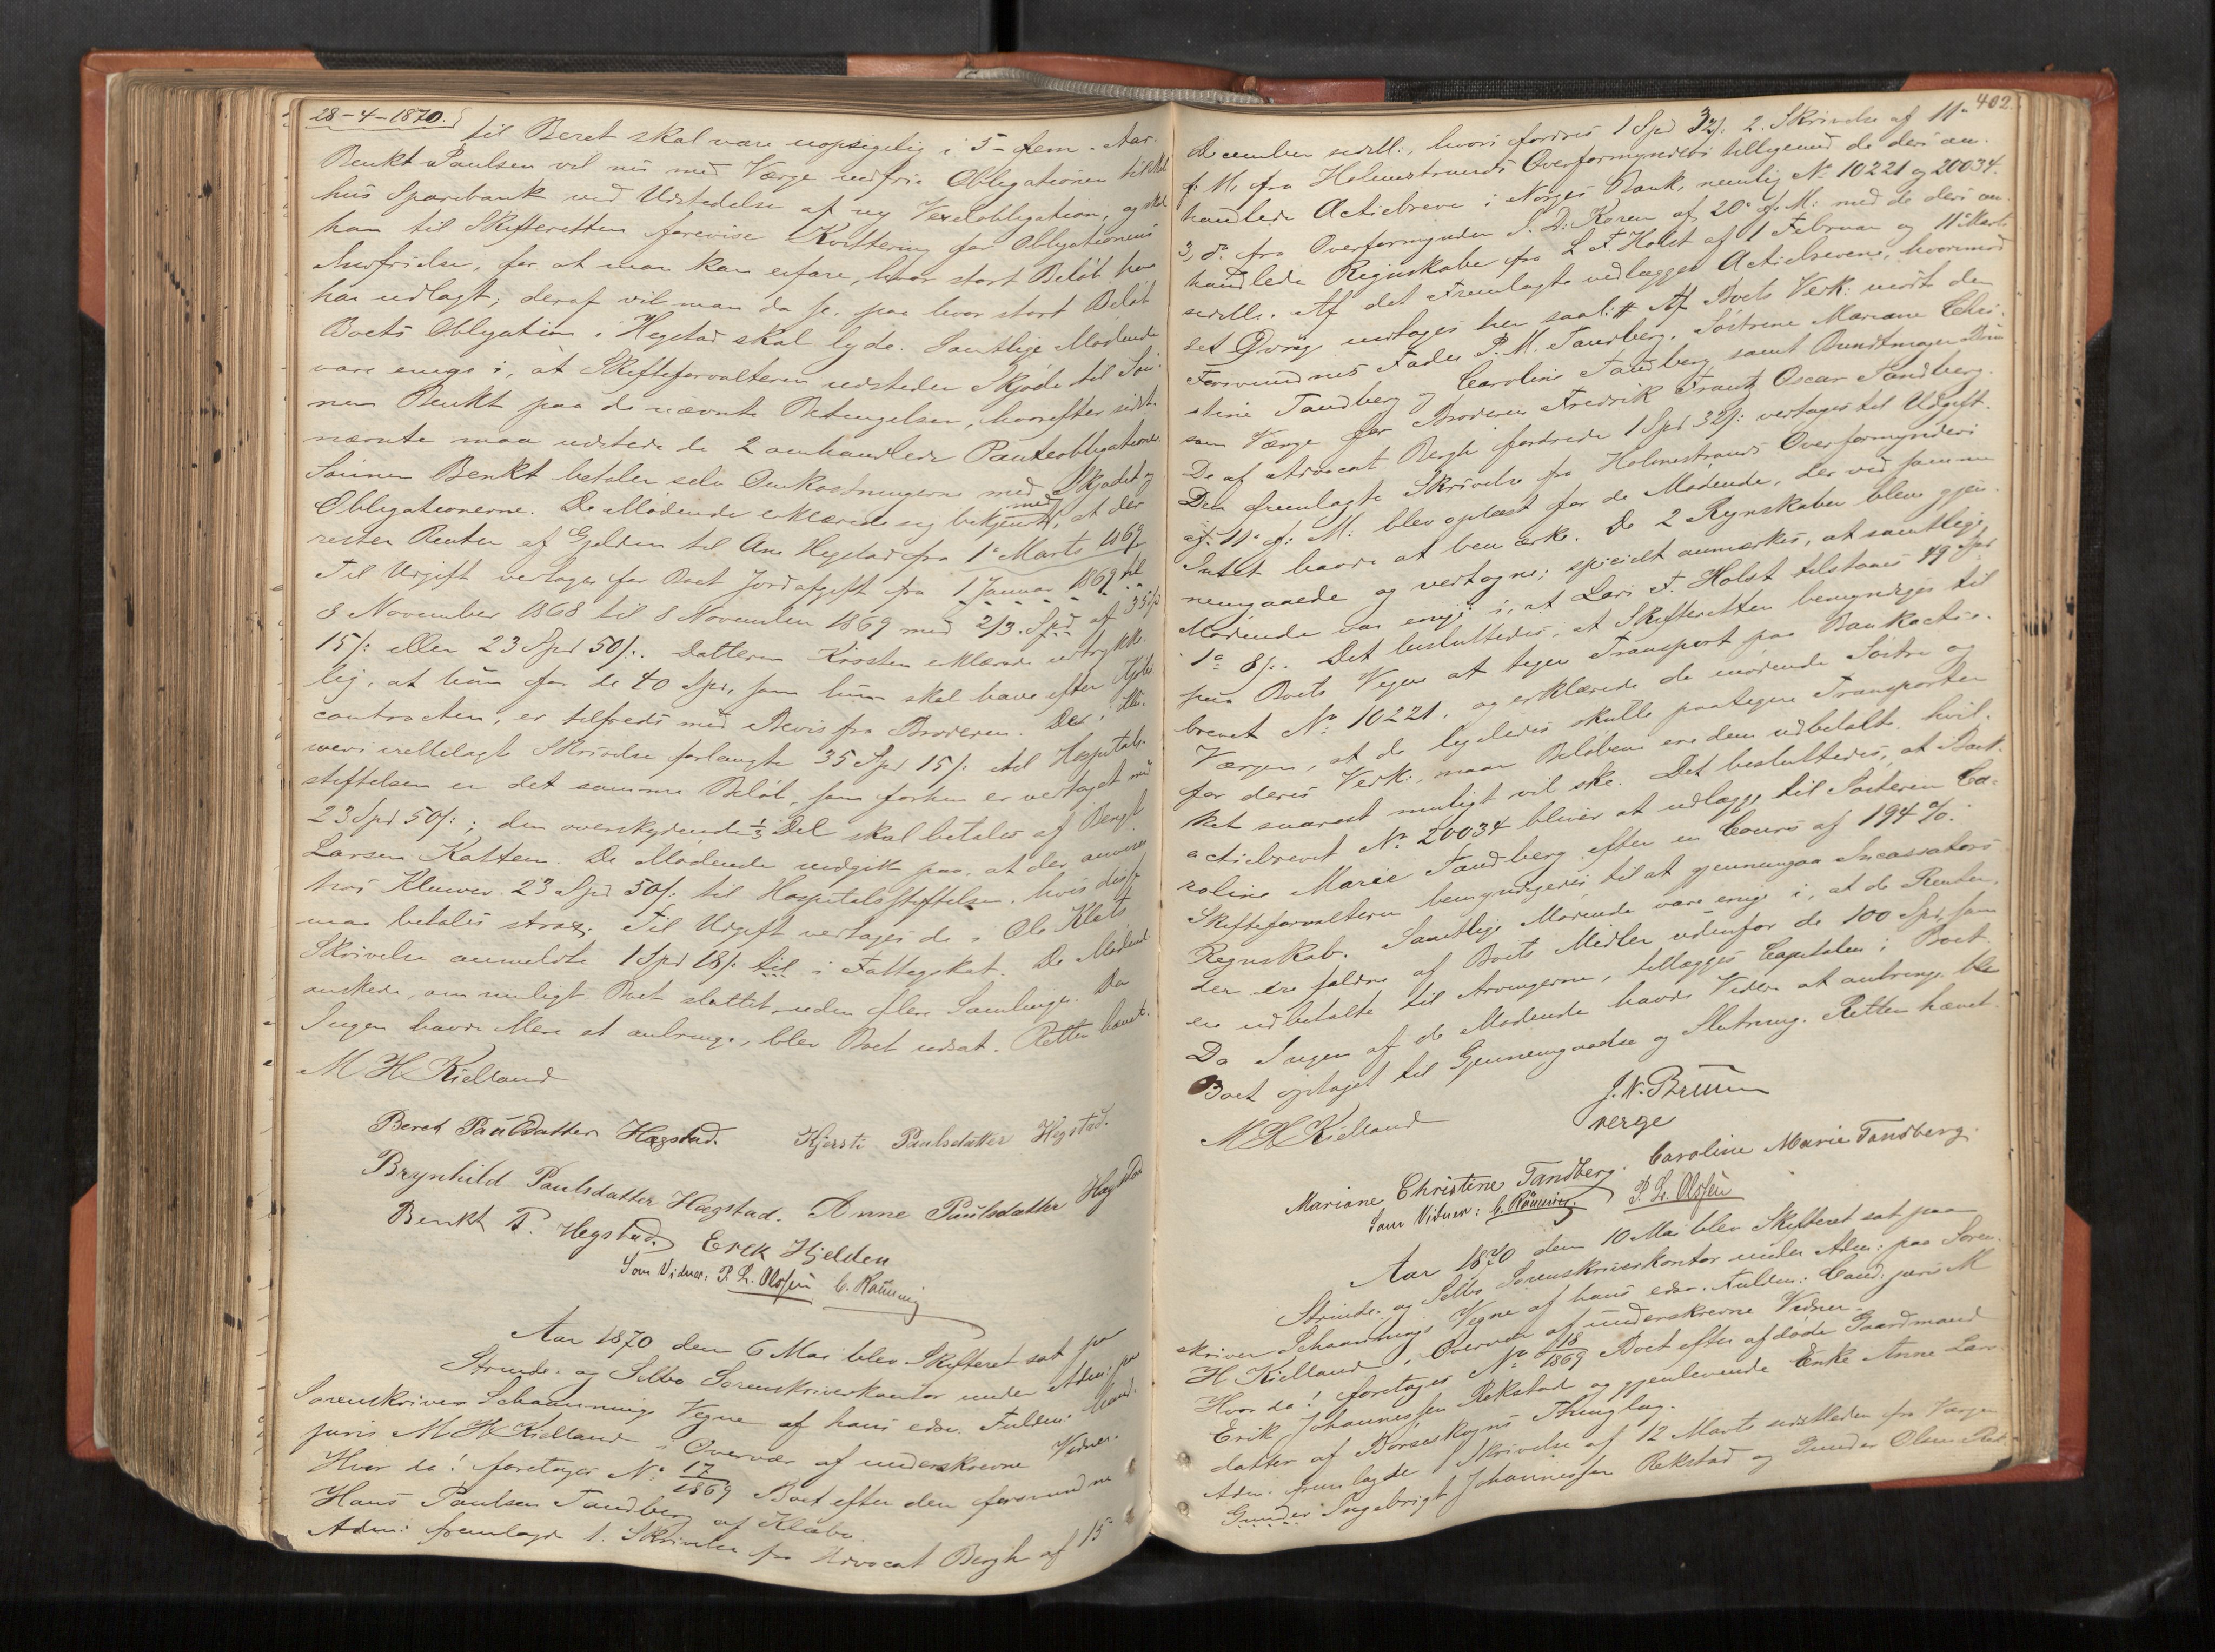 28-4-1870.
til Beret skal være uopsigelig i 5- fem - Aar.
Benkt Paulsen vil nu med Værge udfrie Obligationen til
hus Sparebank ved Udstedelse af ny Vexelobligation, og skal
han til Skifteretten forevise Kvittering for Obligationens
Indfrielse, for at man kan erfare, hvor stort Beløb han
har udlagt; deraf vil man da se, paa hvor stort Beløb
Boets Obligation i Hegstad skal lyde. Samtlige Mødende
vare enige i, at Skifteforvalteren udsteder Skjøde til Søn-
nen Benkt paa de nævnte Betingelser, hvorefter sidst-
nævnte maa udstede de 2 omhandlede Panteobligationer.
Sønnen Benkt betaler selv Omkostningerne med Skjødet og
Obligationerne. De Mødende erklærede sig bekjendt med, at der
rester Renter af Gjelden til Ane Hegstad fra 1e Marts 1869.
Til Udgift vedtages for Boet Jordafgift fra 1 Januar 1869 til
8 November 1868 til 8 November 1869 med 2/3 Spd af 35 Spd
15 /: eller 23 Spd 50 /:. Datteren Kirsten erklærede udtrykke-
lig, at hun for de 40 Spd, som hun skal have efter Kjøbe-
contracten, er tilfreds med Bevis fra Broderen. Det i Klü-
wers vedlagte Skrivelse forlangte 35 Spd 15 /: til Hospitals-
stiftelsen er det samme Beløb, som forhen er vedtaget med
23 Spd 50 /:; den overskydende 1/3 Del skal betales af Bengt
Larsen Kattem. De Mødende indgik paa, at der anvises
hos Kluwer 23 Spd 50 /: til Hospitalsstiftelsen, hvis disse
maa betales strax. Til Udgift vedtages de i Ole Klets
Skrivelse anmeldte 1 Spd 18 /: til i Fattigskat. De Mødende
ønskede, om muligt, Boet sluttet uden flere Samlinger. Da
Ingen havde Mere at anbringe, blev Boet udsat. Retten hævet.
M H Kielland
Beret Paulsdatter Hægstad. Kjersti Paulsdatter Hegstad.
Brynhild Paulsdatter Hægstad. Anne Paulsdatter Hægstad
Benkt P. Hegstad. Erik Hjelden
Som Vidner: P. L. Olsen C. Rønning
Aar 1870 den 6 Mai blev Skifteret sat paa
Strinde- og Selbo Sorenskriverkontor under Adm: paa
Sorenskriver Schaannings Vegne af hans edsv. Fuldm: Cand.
juris M H Kielland i Overvær af underskrevne Vidner.
Hvor da! foretages No 17/1869 Boet efter den forsvundne
Hans Paulsen Tandberg af Klæbo.
Adm: fremlagde 1. Skrivelse fra Advocat Bergh af 15e
402.
December sidstl:, hvori fordres 1 Spd 32 /: 2. Skrivelse af 11e
f. M. fra Holmestrands Overformynderi tilligemed de deri om-
handlede Actiebreve i Norges Bank, nemlig No 10221 og 20034.
3, do fra Overformynder S. D. Koren af 20e f. M: med de deri om-
handlede Regnskaber fra L. F. Holst af 1 Februar og 11e Marts
sidstl. Af det Fremlagte vedlægges Actiebrevene, hvorimod
det Øvrig indtages her saal: # Af Boets Vedk: mødt den
Forsvundnes Fader P. M. Tandberg, Søstrene Mariane Chri-
stine Tandberg og Caroline Tandberg samt Bundtmager Brun
som Værge for Broderen Fredrik Frantz Oscar Tandberg.
De af Advocat Bergh fordrede 1 Spd 32 /: vedtages til Udgift.
Den fremlagte Skrivelse fra Holmestrands Overformynderi
af 11e f: M: blev oplæst for de Mødende, der ved samme
Intet havde at bemærke. De 2 Regnskaber bleve gjen-
nemgaaede og vedtagne; specielt anmærkes, at samtlige
Mødende var enige i, at Lars F. Holst tilstaaes 49 Spd
1o 8 /:. Det besluttedes, at Skifteretten bemyndiges til
paa Boets Vegne at tegne Transport paa Bankactie-
brevet No 10221, og erklærede de mødende Søstre og
Værgen, at de ligeledes skulle paategne Transporten
for deres Vedk:, naar Beløbene ere dem udbetalt, hvil-
ket snarest muligt vil ske. Det besluttedes, at Bank-
actiebrevet No 20034 bliver at udlægge til Søsteren Ca-
roline Marie Tandberg efter en Cours af 194 %.
Skifteforvalteren bemyndigedes til at gjennemgaa Incassators
Regnskab. Samtlige Mødende vare enige i, at de Renter,
der ere faldne af Boets Midler udenfor de 100 Spd, som
ere udbetalte til Arvingerne, tillægges Capitalen i Boet.
Da Ingen af de Mødende havde Videre at anbringe, blev
Boet optaget til Gjennemgaaelse og Slutning. Retten hævet.
M H Kielland J. N. Bruun
verge
Mariane Christine Tandberg. Caroline Marie Tandberg.
Som Vidner: C. Rønning. P. L. Olsen
Aar 1870 den 10 Mai blev Skifteret sat paa
Strinde- og Selbo Sorenskriverkontor under Adm: paa Soren-
skriver Schaannings Vegne af hans edsv. Fuldm: Cand. juris M
H Kielland i Overvær af underskrevne Vidner.
Hvor da! foretages No 118/1869 Boet efter afdøde Gaardmand
Erik Johannessen Rekstad og gjenlevende Enke Anne Lars-
datter af Børseskogns Thinglag.
Adm: fremlagde 1 Skrivelse af 12 Marts sidstleden fra Værgen
Gunder Ingebrigt Johannessen Rekstad og Gunder Olsen Rek-